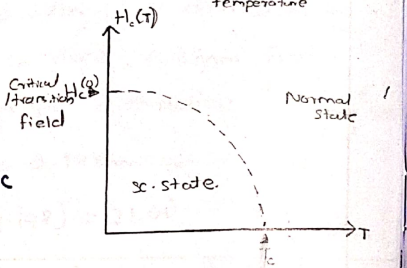 temperature
H_c(T)
Critical
/transition
field
H_c(0)
Normal
state
sc. state.
T
T_c
c